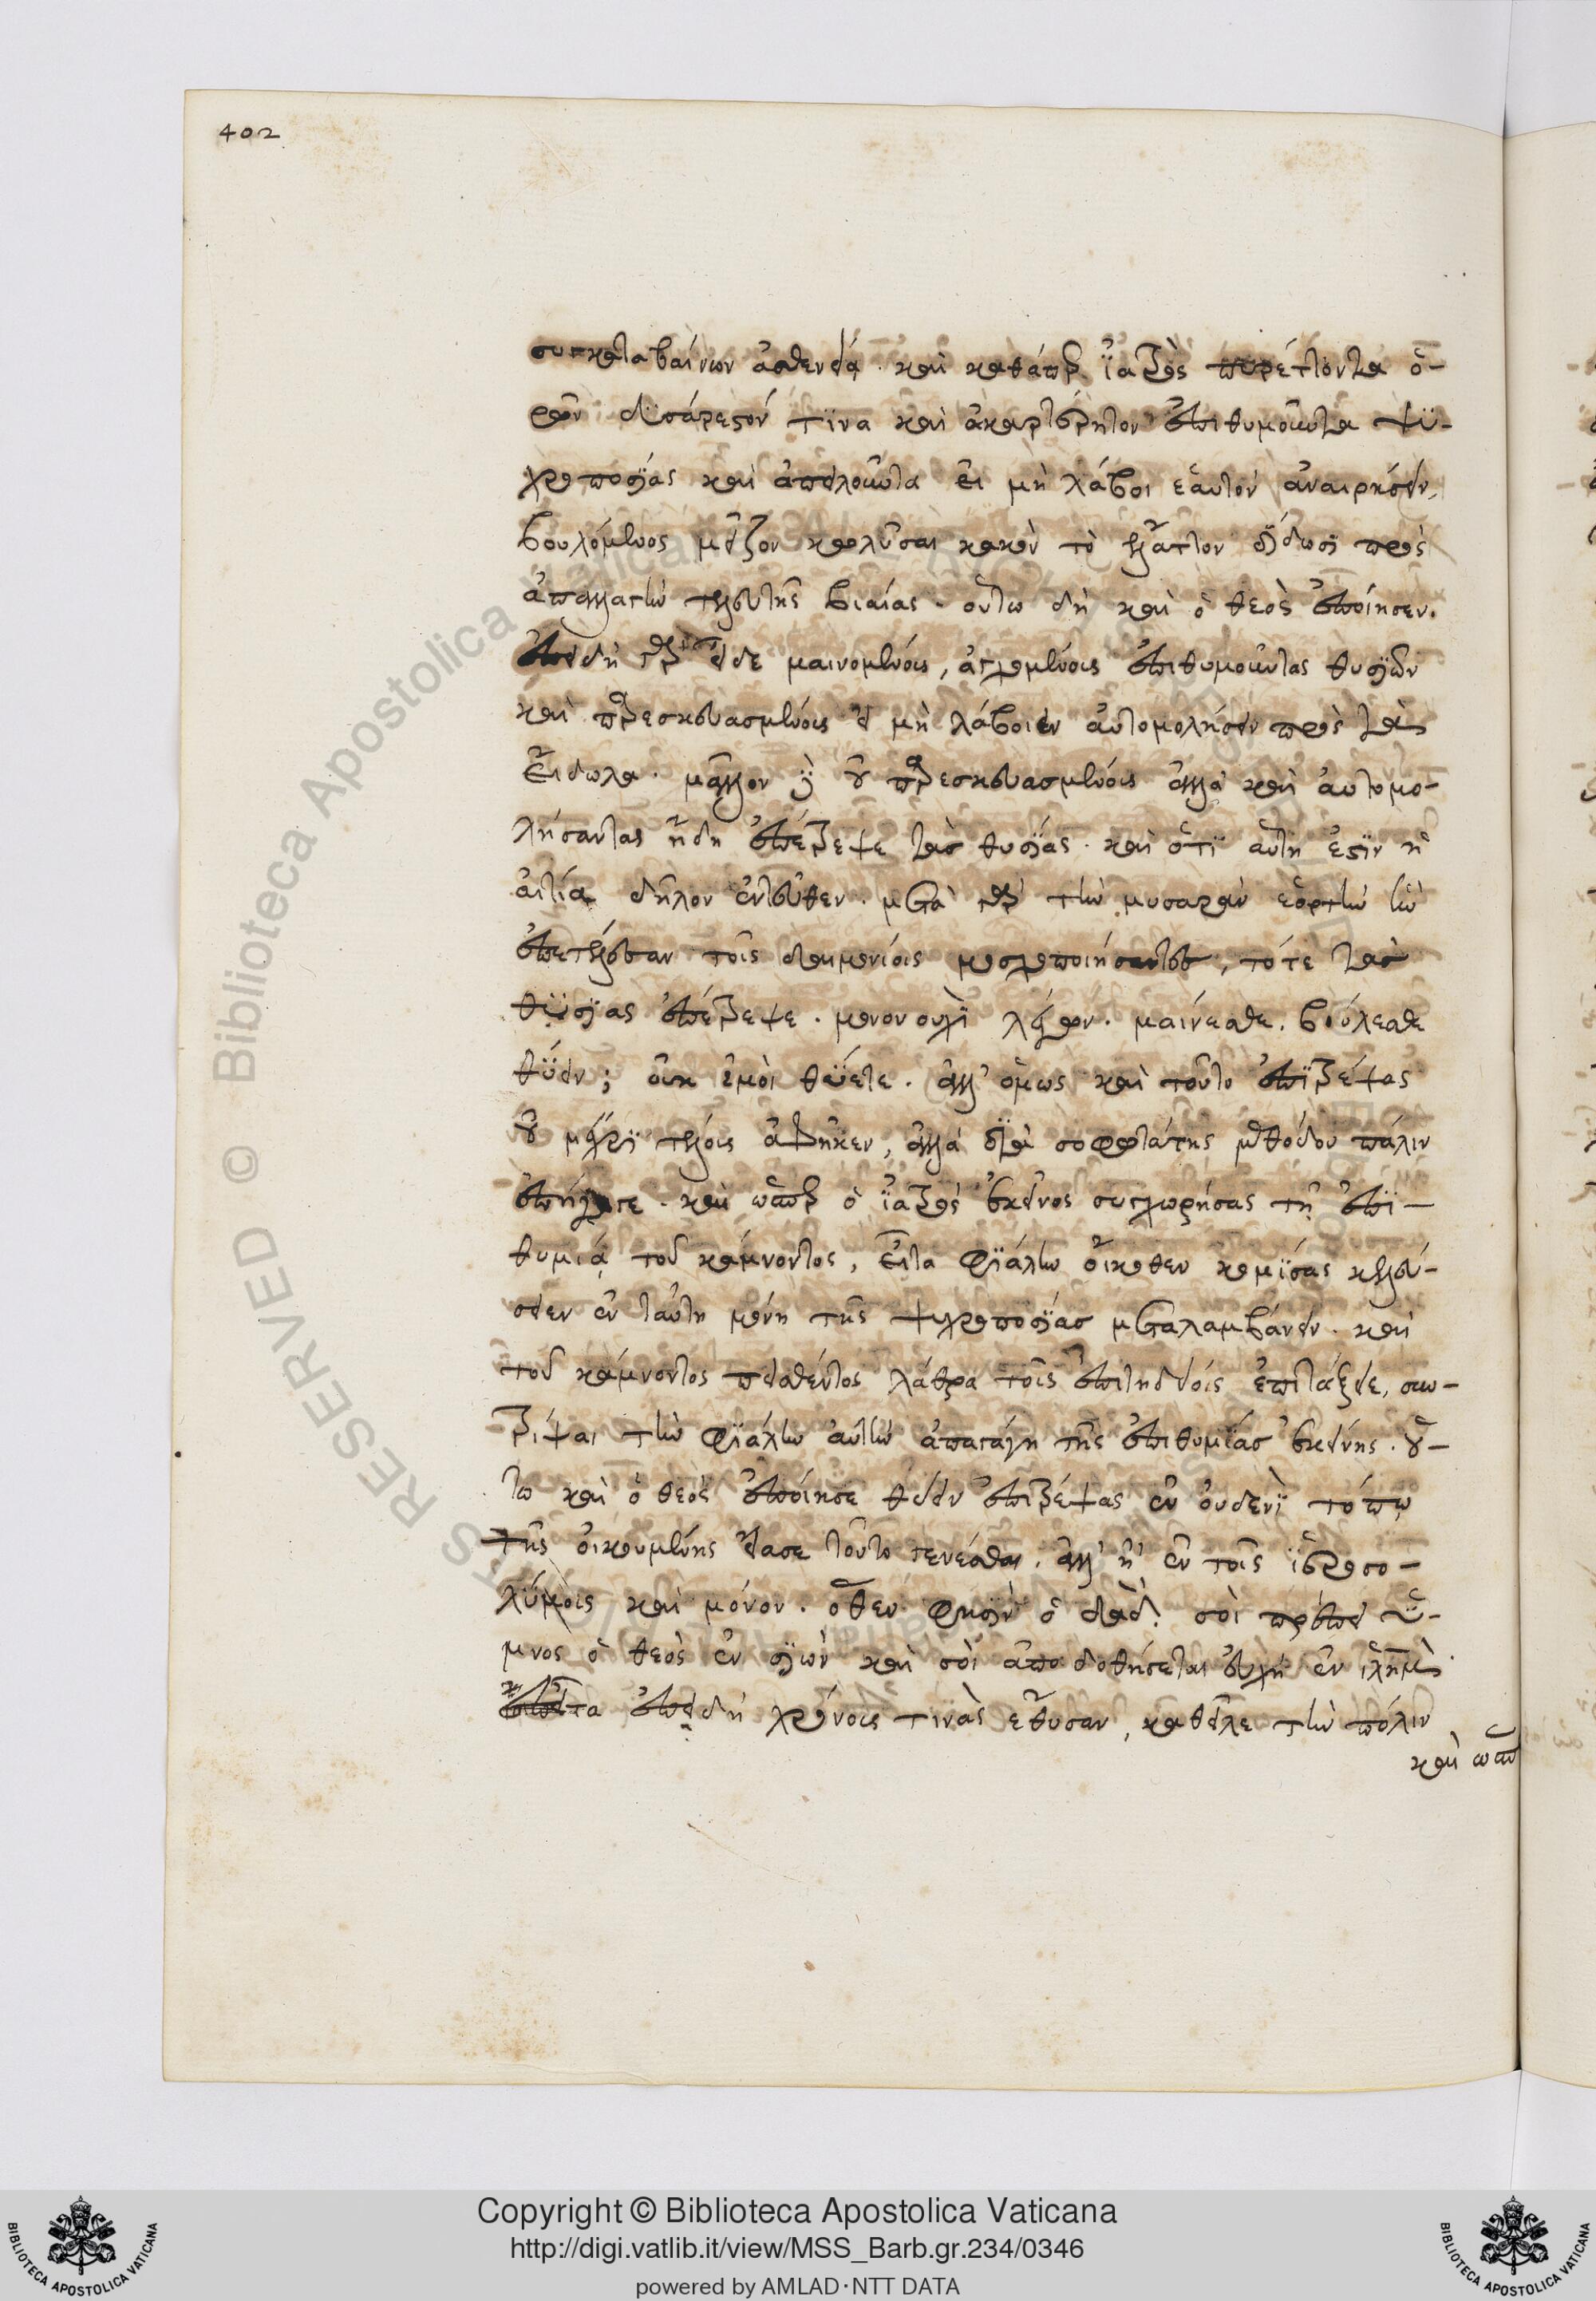 402
συγκαταβαίνων ἀσθενείᾳ. καὶ καθάπερ ἰατρὸς πυρέττοντα ὁ-
ρῶν δυσάρεστόν τινα καὶ ἀκαρτέρητον ἐπιθυμοῦντα ψυ-
χροποσίας καὶ ἀπειλοῦντα εἰ μὴ λάβοι ἑαυτὸν ἀναιρήσειν,
βουλόμενος μεῖζον κωλῦσαι κακὸν τὸ ἔλαττον δίδωσι πρὸς
ἀπαλλαγὴν τελευτῆς βιαίας. οὕτω δὴ καὶ ὁ θεὸς ἐποίησεν.
ἐπειδὴ γὰρ εἶδε μαινομένους, ἀγχομένους ἐπιθυμοῦντας θυσιῶν
καὶ παρεσκευασμένους εἰ μὴ λάβοιεν αὐτομολήσειν πρὸς τὰ
εἴδωλα. μᾶλλον δὲ οὐ παρεσκευασμένους ἀλλὰ καὶ αὐτομο-
λήσαντας ἤδη ἐπέτρεψε τὰς θυσίας. καὶ ὅτι αὕτη ἐστὶν ἡ
αἰτία δῆλον ἐντεῦθεν. μετὰ γὰρ τὴν μυσαρὰν ἑορτὴν ἣν
ἐπετέλεσαν τοῖς δαιμονίοις μοσχοποιήσαντες, τότε τὰς
θυσίας ἐπέτρεψε. μονονουχὶ λέγων. μαίνεσθε. βούλεσθε
θύειν; οὐκ ἐμοὶ θύετε. ἀλλ' ὅμως καὶ τοῦτο ἐπιτρέψας
οὐ μέχρι τέλους ἀφῆκεν, ἀλλὰ διὰ σοφωτάτης μεθόδου πάλιν
ἐπήγαγε. καὶ ὥσπερ ὁ ἰατρὸς ἐκεῖνος συγχωρήσας τῇ ἐπι-
θυμίᾳ τοῦ κάμνοντος, εἶτα φιάλην οἴκοθεν κομίσας κελεύ-
σειεν ἐν ταύτῃ μόνῃ τῆς ψυχροποσίας μεταλαμβάνειν. καὶ
τοῦ κάμνοντος πεισθέντος λάθρα τοῖς ἐπιτηδείοις ἐπιτάξειε, συν-
τρίψαι τὴν φιάλην αὐτὴν ἀπαγάγῃ τῆς ἐπιθυμίας ἐκείνης. οὕ-
τω καὶ ὁ θεὸς ἐποίησε θύειν ἐπιτρέψας ἐν οὐδενὶ τόπῳ
τῆς οἰκουμένης εἴασε τοῦτο γενέσθαι. ἀλλ' ἢ ἐν τοῖς ἱεροσο-
λύμοις καὶ μόνον. ὅθεν φησὶν ὁ δαδ. σοὶ πρέπει ὕ-
μνος ὁ θεὸς ἐν σιὼν καὶ σοὶ ἀποδοθήσεται εὐχὴ ἐν ἱλημ.
ἔπειτα ἐπειδὴ χρόνους τινὰς ἔθυσαν, καθεῖλε τὴν πόλιν
καὶ ὥσπ
Copyright © Biblioteca Apostolica Vaticana
http://digi.vatlib.it/view/MSS_Barb.gr.234/0346
powered by AMLAD·NTT DATA